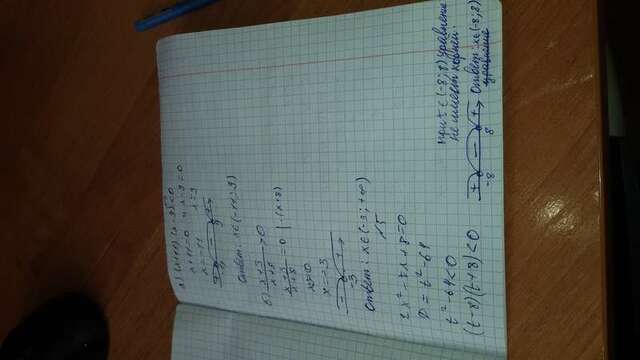 а) (x+11)(x-9)<0
x+11=0 и x-9=0
x=-11 x=9
+ - +
-11 9
Ответ: x∈(-11; 9)
б) x+3/x+8 >0
x+3/x+8 =0 | ·(x+8)
x=-3
- +
-3
Ответ: x∈(-3; +∞)
№5
2x²-tx+8=0
D=t²-64
t²-64<0
при t∈(-8; 8) уравнение
не имеет корней.
(t-8)(t+8)<0
+ - +
-8 8
Ответ: x∈(-8; 8)
уравнение